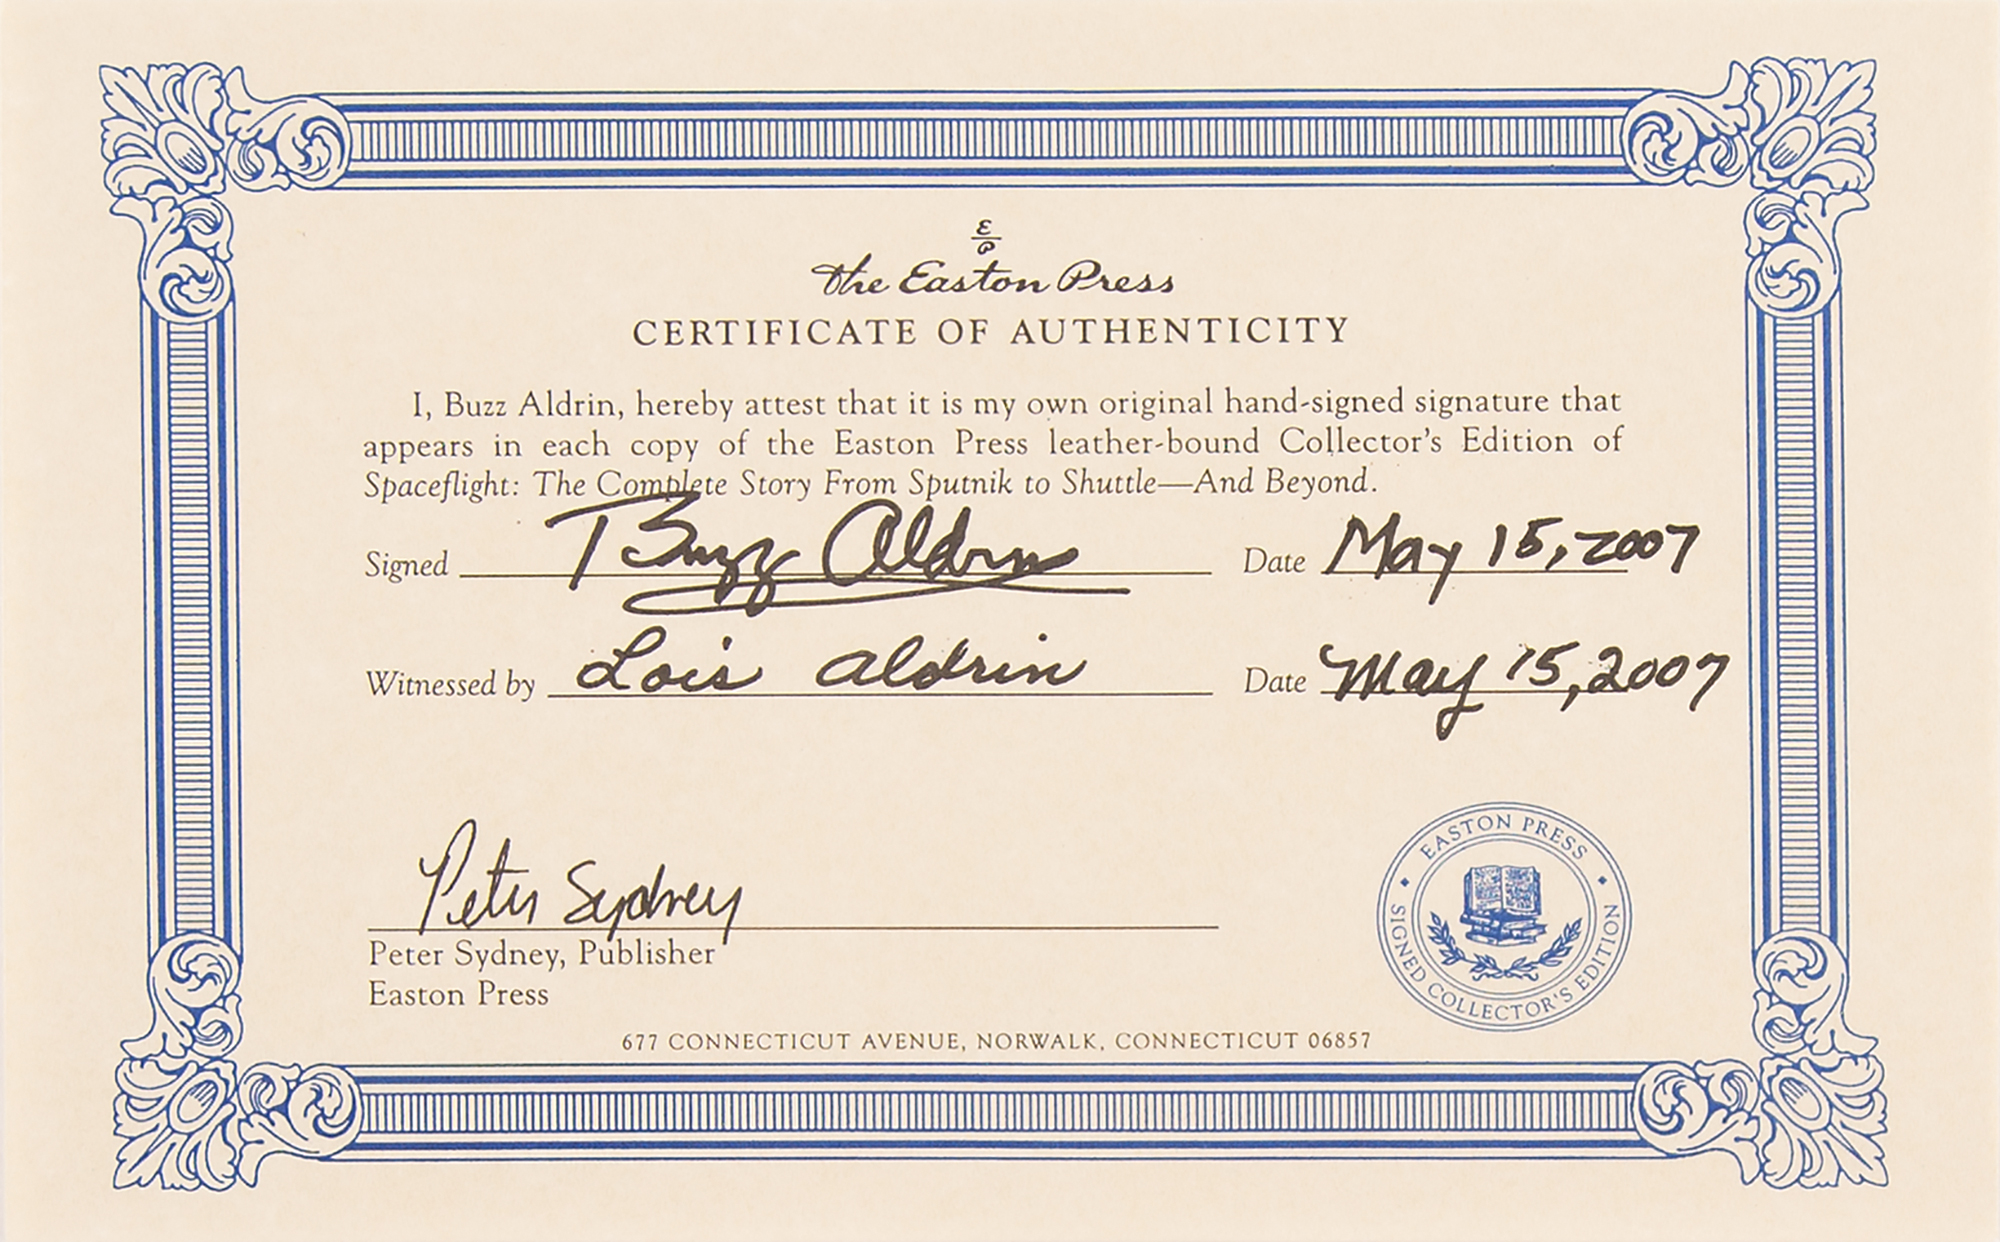 E
P
The Easton Press
CERTIFICATE OF AUTHENTICITY
I, Buzz Aldrin, hereby attest that it is my own original hand-signed signature that
appears in each copy of the Easton Press leather-bound Collector's Edition of
Spaceflight: The Complete Story From Sputnik to Shuttle—And Beyond.
Signed Buzz Aldrin Date May 15, 2007
Witnessed by Lois Aldrin Date May 15, 2007
Peter Sydney
Peter Sydney, Publisher
Easton Press
EASTON PRESS
SIGNED COLLECTOR'S EDITION
677 CONNECTICUT AVENUE, NORWALK, CONNECTICUT 06857